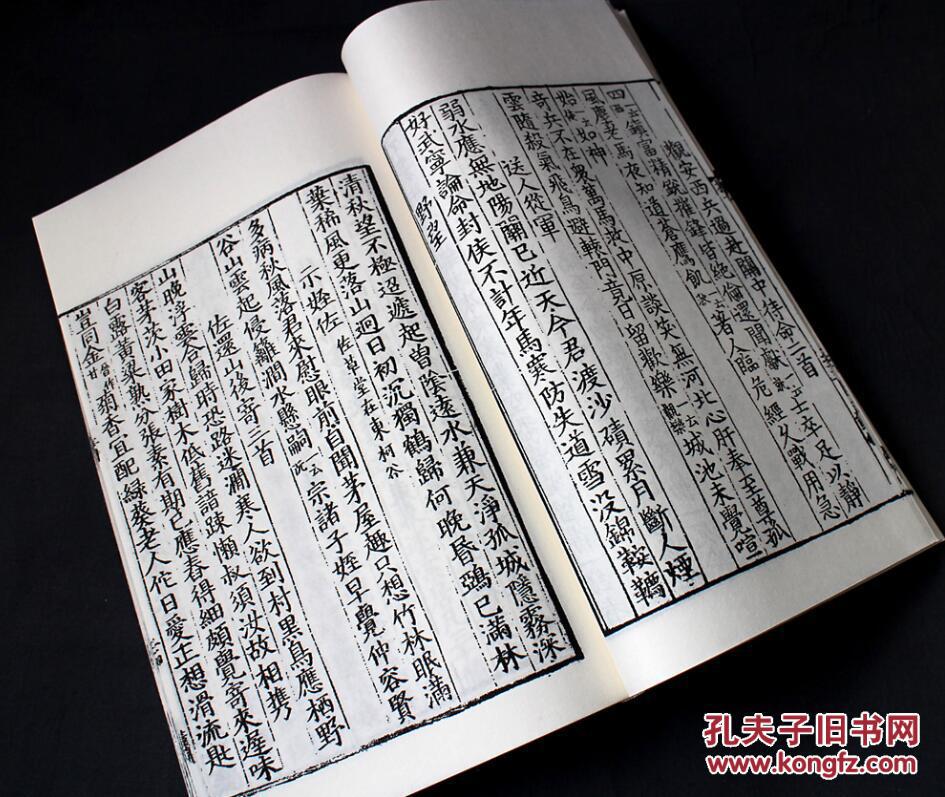 觀安西兵過赴關中待命二首
四
鎮富精銳摧鋒皆絕倫還聞獻
士卒足以靜
風塵老馬夜知道蒼鷹飢
著人臨危經久戰用急
始
如神
奇兵不在衆萬馬救中原談笑無河北心肝奉至尊孤
雲隨殺氣飛鳥避轅門竟日留歡樂
城池未覺喧
送人從軍
弱水應無地陽關已近天今君渡沙磧累月斷人煙
好武寧論命封侯不計年馬寒防失道雪沒錦鞍韉
野望
清秋望不極迢遞起曾陰遠水兼天淨孤城隱霧深
葉稀風更落山迥日初沉獨鶴歸何晚昏鵶已滿林
示姪佐
佐草堂在東柯谷
多病秋風落君來慰眼前自聞茅屋趣只想竹林眠滿
谷山雲起侵籬澗水懸嗣
宗諸子姪早覺仲容賢
佐還山後寄二首
山晚浮雲合歸時恐路迷澗寒人欲到村黑鳥應栖野
客茅茨小田家樹木低舊諳踈懶叔須汝故相携
白露黃粱熟分張素有期已應舂得細頗覺寄來遲味
豈同金
菊香宜配綠葵老人佗日愛正想滑流匙
孔夫子旧书网
www.kongfz.com